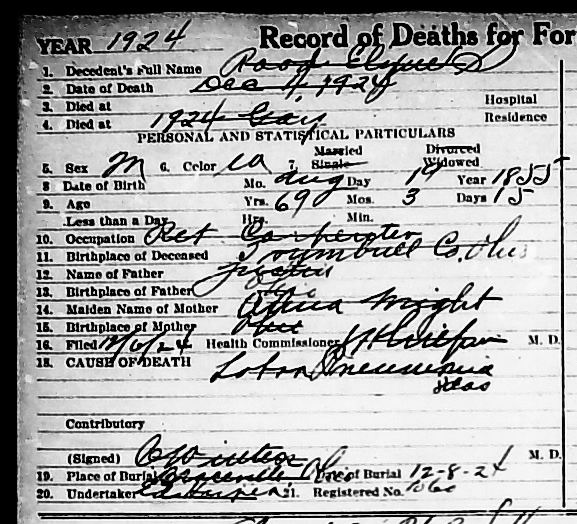 YEAR 1924 Record of Deaths for For
1. Decedent's Full Name
2. Date of Death Dec 4, 1924
3. Died at Hospital
4. Died at 1924 Residence
PERSONAL AND STATISTICAL PARTICULARS
Married Divorced
5. Sex M 6. Color 7. Single Widowed
8 Date of Birth Mo. Aug Day 19 Year 1855
9. Age Yrs. 69 Mos. 3 Days 15
Less than a Day Hrs. Min.
10. Occupation Ret Carpenter
11. Birthplace of Deceased Trumbull Co. Ohio
12. Name of Father
13. Birthplace of Father
14. Maiden Name of Mother Wright
15. Birthplace of Mother
16. Filed 12/6/24 Health Commissioner M. D.
18. CAUSE OF DEATH Lobar Pneumonia
Contributory
(Signed) M. D.
19. Place of Burial Date of Burial 12-8-24
20. Undertaker 21. Registered No. 1060